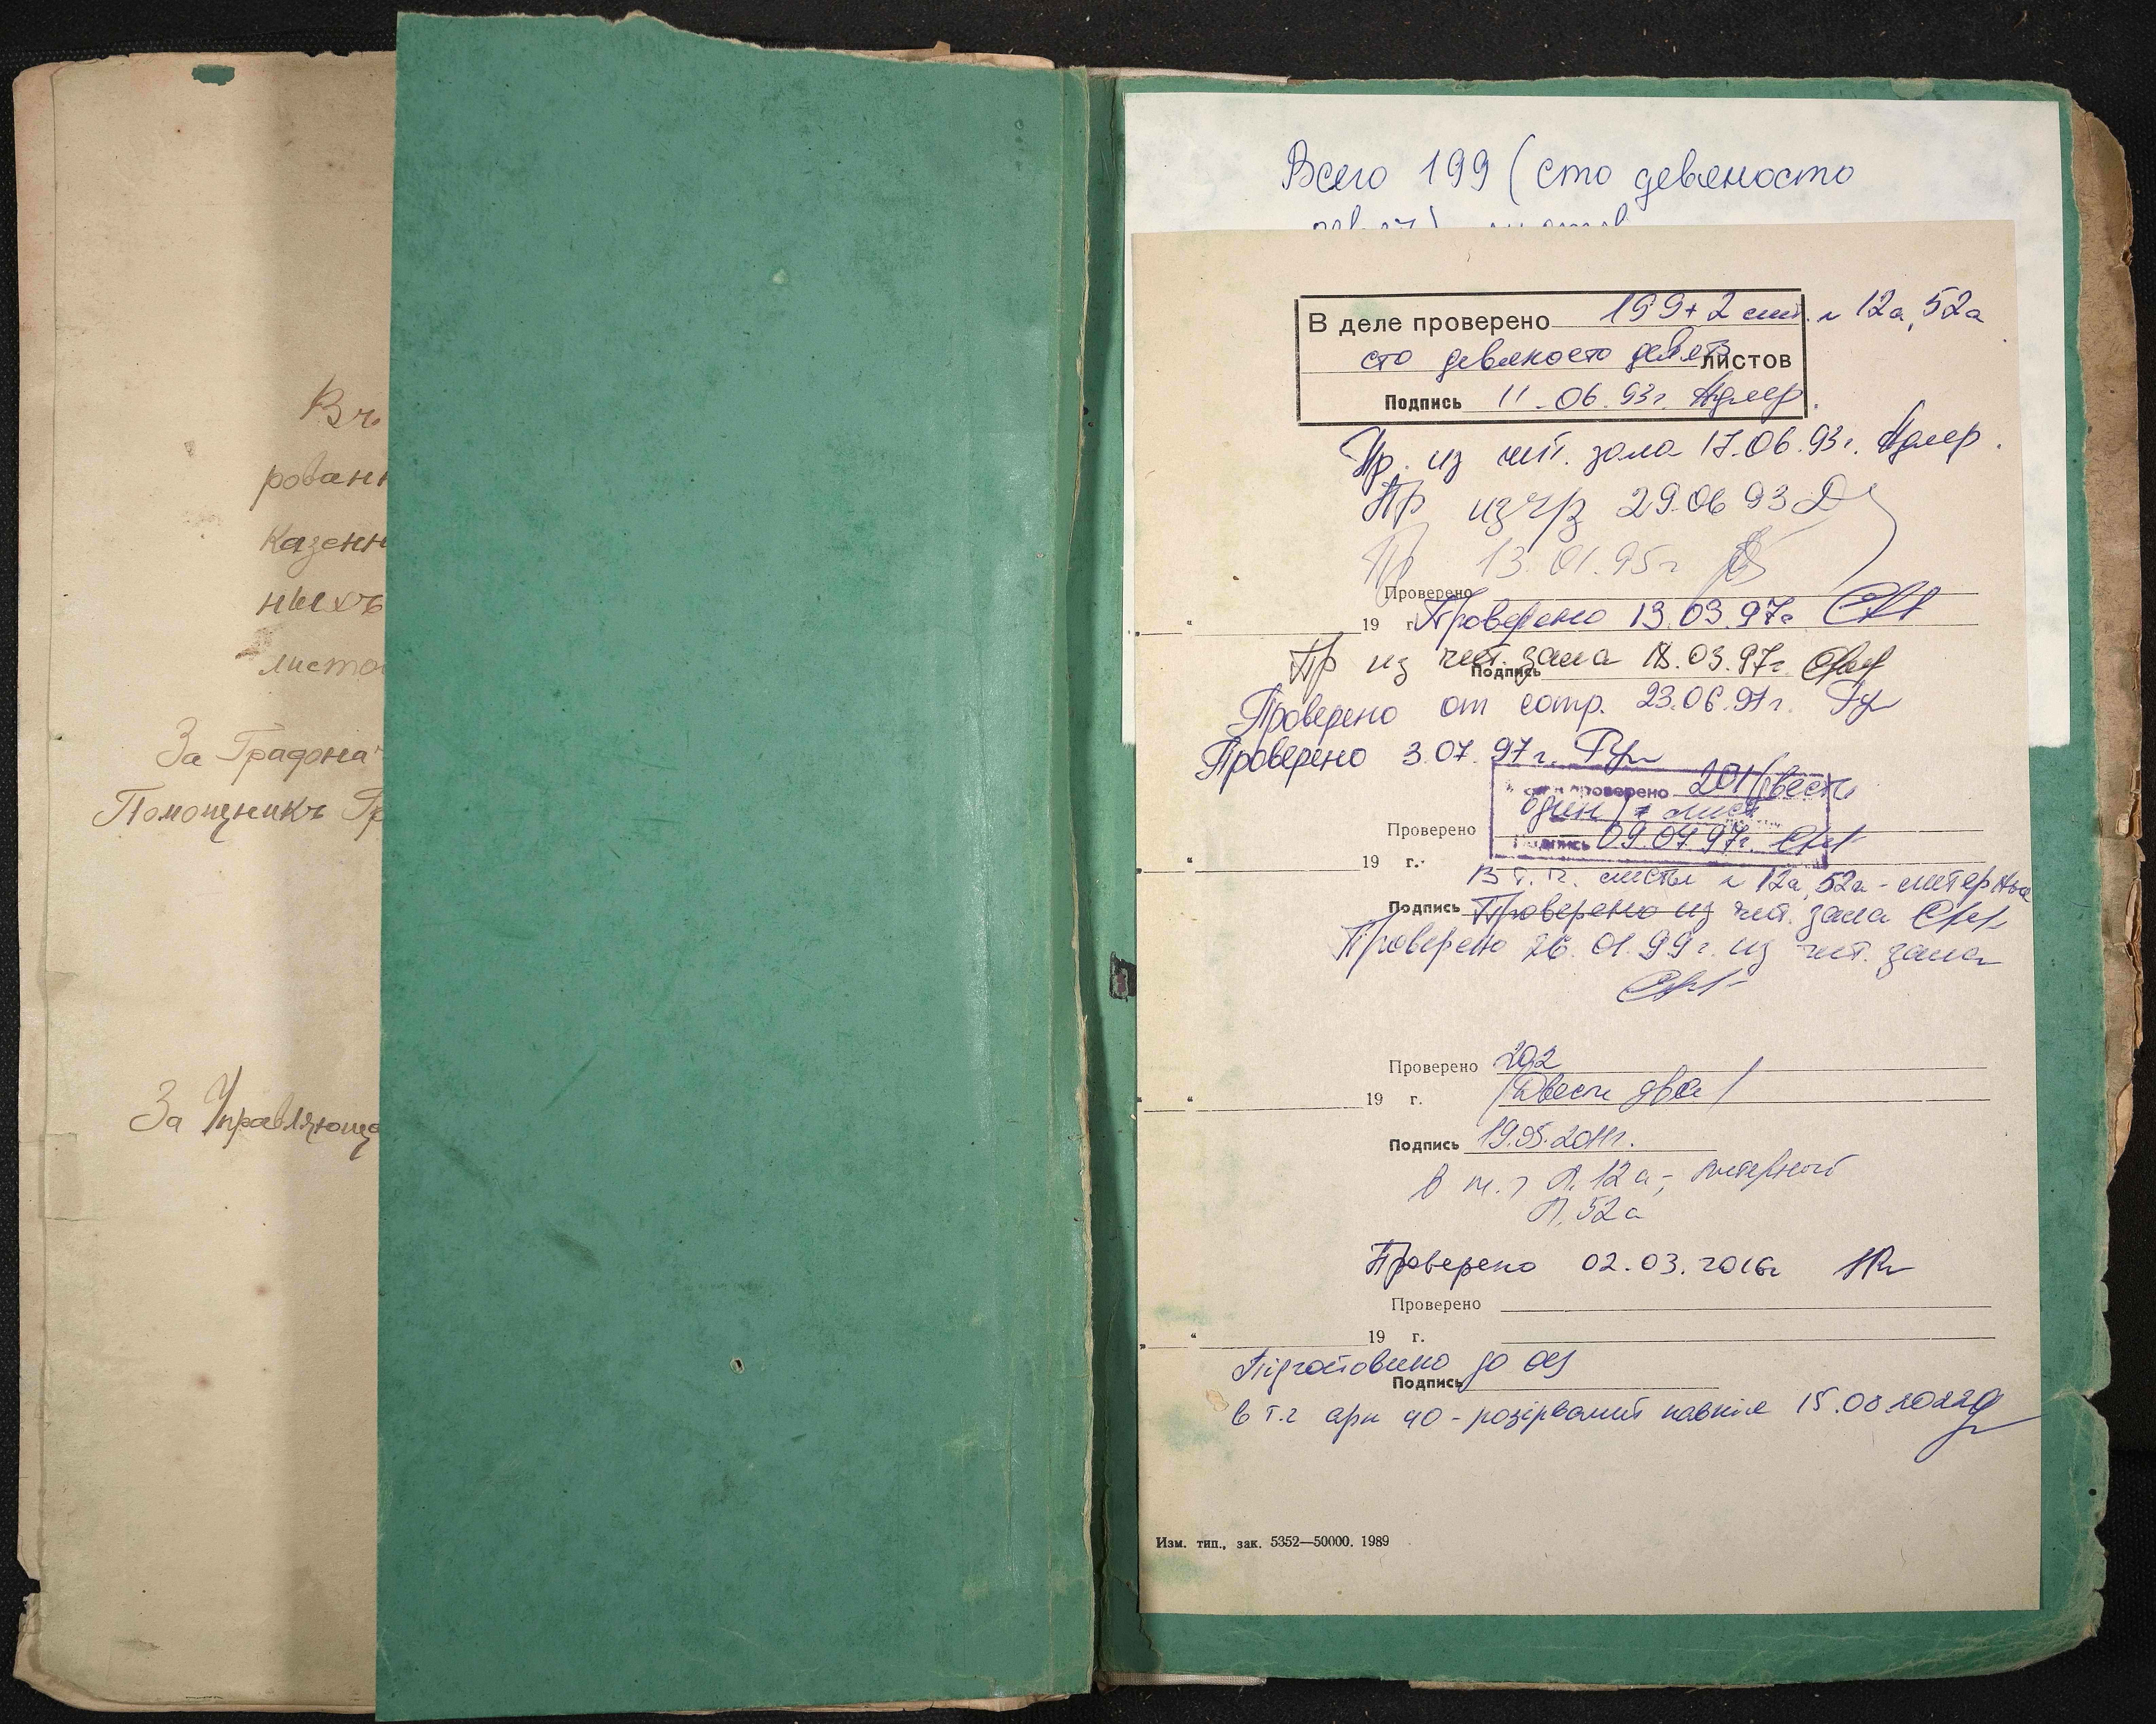 Въ
рованн
Казенн
ныхъ
листо
За Градона
Помощникъ Гр
За Управляюще
Всего 199 (сто девяносто
В деле проверено 199+2 лит. л 12а, 52а
сто девяносто девять листов
Подпись 11.06.93г. Адлер.
Пр. из чит. зала 17.06.93г. Адлер.
Пр из ч/з 29.06 93
Пр 13.01.95г
Проверено
19 г. Проверено 13.03.97г
Пр из чит. зала 18.03.97г
Подпись
Проверено от сотр. 23.06.97г.
Проверено 3.07.97г.
проверено 201/двести
один/ лист
Проверено
Подпись 09.07.97г.
19 г.
В т.ч. листы л 12а, 52а - литерные
Подпись Проверено из чит. зала
Проверено 26.01.99г. из чит. зала
Проверено 202
19 г. /двести два/
Подпись 19.05.2011г.
в т.ч Л.12а - литерный
Л.52а
Проверено 02.03.2016г
Проверено
19 г.
Підготовлено до
Подпись
в т.ч арк 40 - розірваний навпіл 15.08.2022
Изм. тип., зак. 5352—50000. 1989